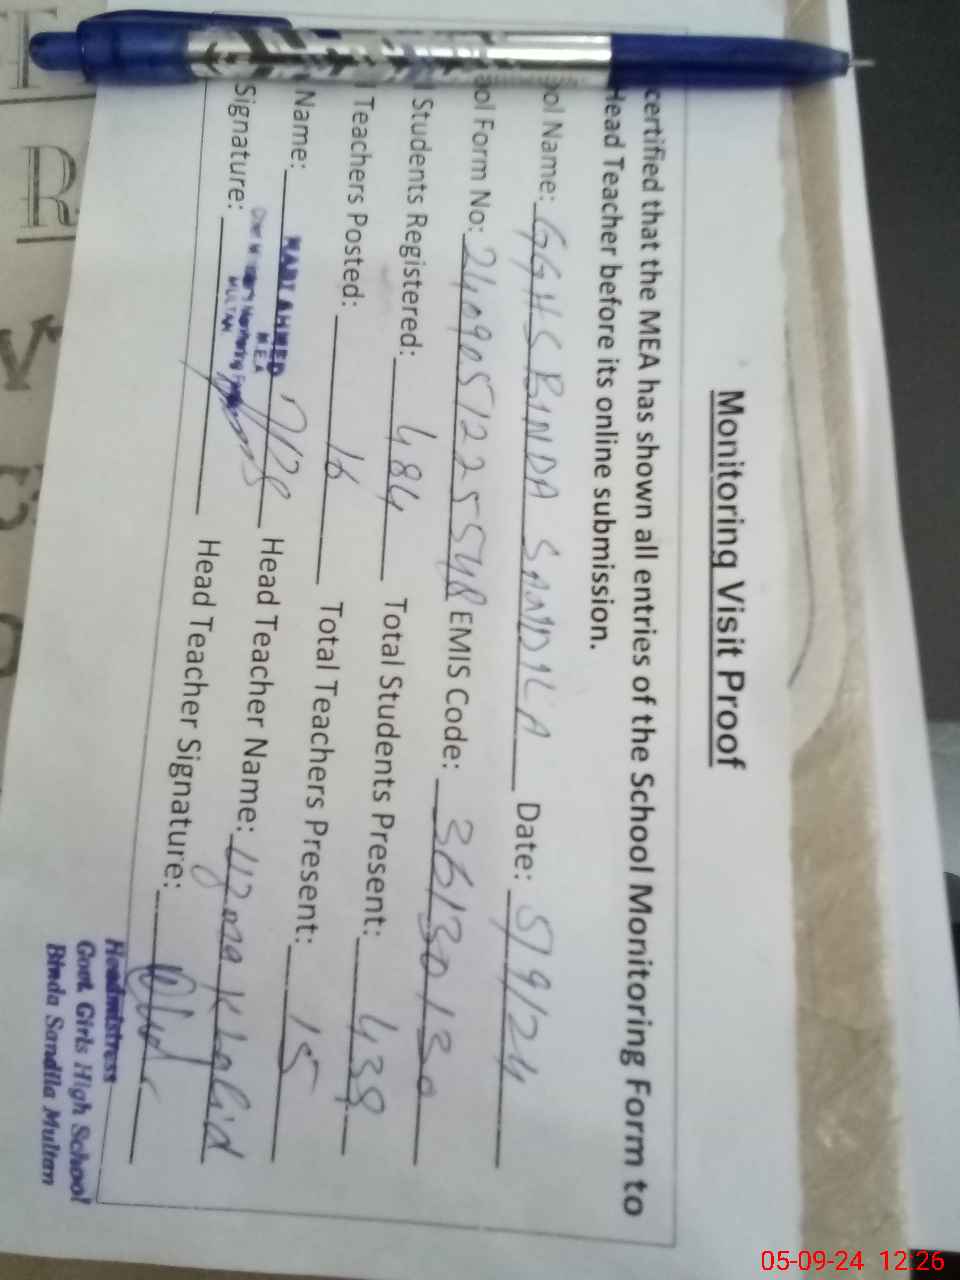 Monitoring Visit Proof
certified that the MEA has shown all entries of the School Monitoring Form to
Head Teacher before its online submission.
ol Name: GGHS BINDA SANDILA Date: 5/9/24
ol Form No: 240905122554 EMIS Code: 36130130
Students Registered: 484 Total Students Present: 438
Teachers Posted: 16 Total Teachers Present: 15
Name: Head Teacher Name: Khalid
M.E.A
MULTAN
Signature: Head Teacher Signature:
Headmistress
Govt. Girls High School
Binda Sandila Multan
R
05-09-24 12:26